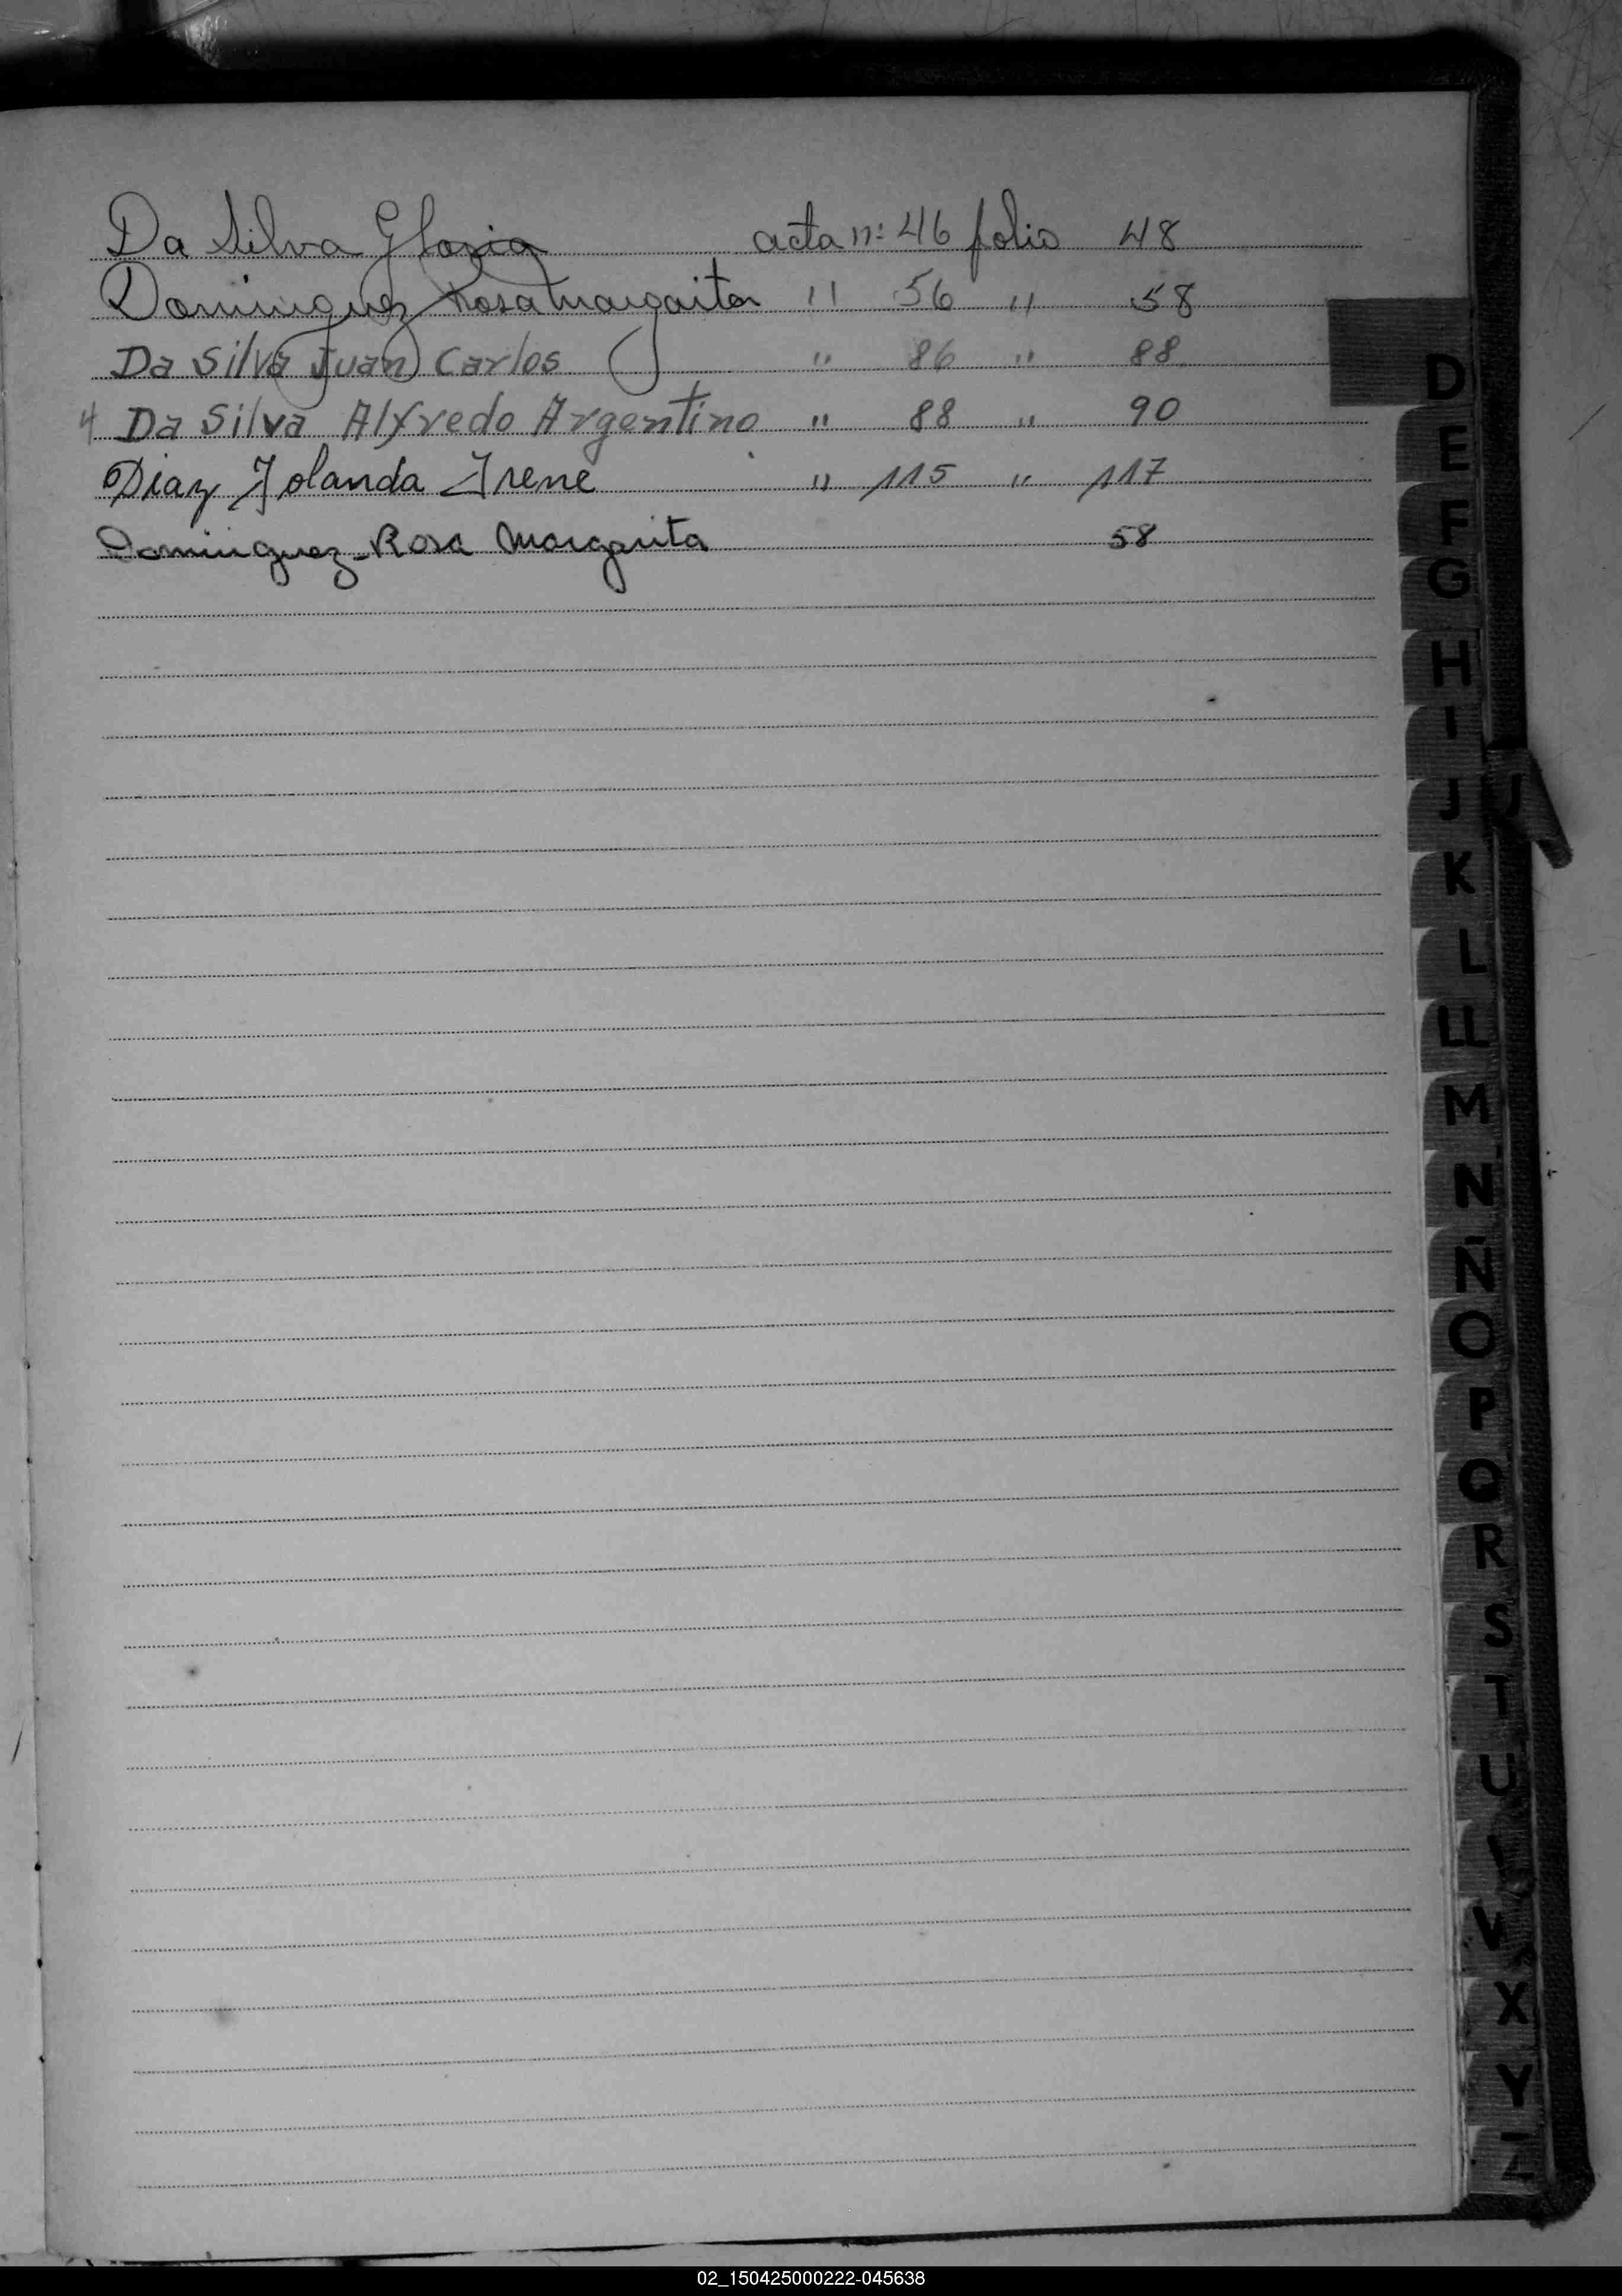 Da Silva Gloria acta nº 46 folio 48
Dominguez Rosa Margarita " 56 " 58
Da Silva Juan Carlos " 86 " 88
4 Da Silva Alfredo Argentino " 88 " 90
Diaz Iolanda Irene " 115 " 117
Dominguez Rosa Margarita 58
D
E
F
G
H
I
J
K
L
LL
M
N
Ñ
O
P
Q
R
S
T
U
V
X
Y
Z
02_150425000222-045638